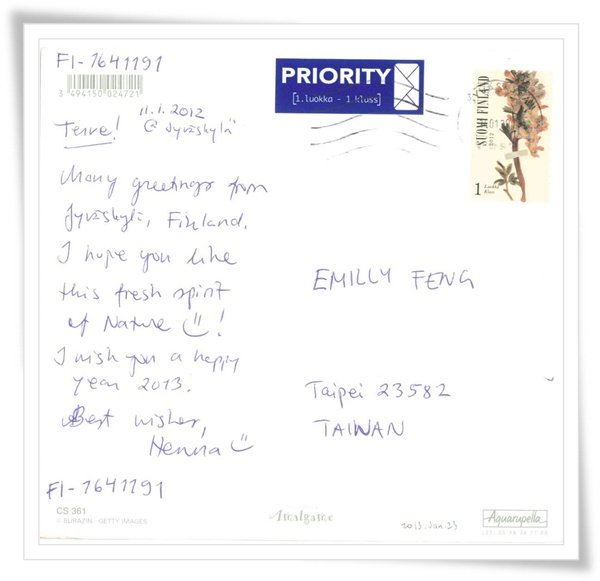 FI-1641191
3 494150 024721
11.1.2012
@ Jyväskylä
Terve!
Many greetings from
Jyväskylä, Finland.
I hope you like
this fresh spirit
of Nature !
I wish you a happy
year 2013.
Best wishes,
Henna
FI-1641191
CS 361
© BURAZIN - GETTY IMAGES
Amalgame
PRIORITY
[1.luokka - 1.klass]
SUOMI FINLAND
1 Luokka
Klass
EMILLY FENG
Taipei 23582
TAIWAN
2013.Jan.23
Aquarupella